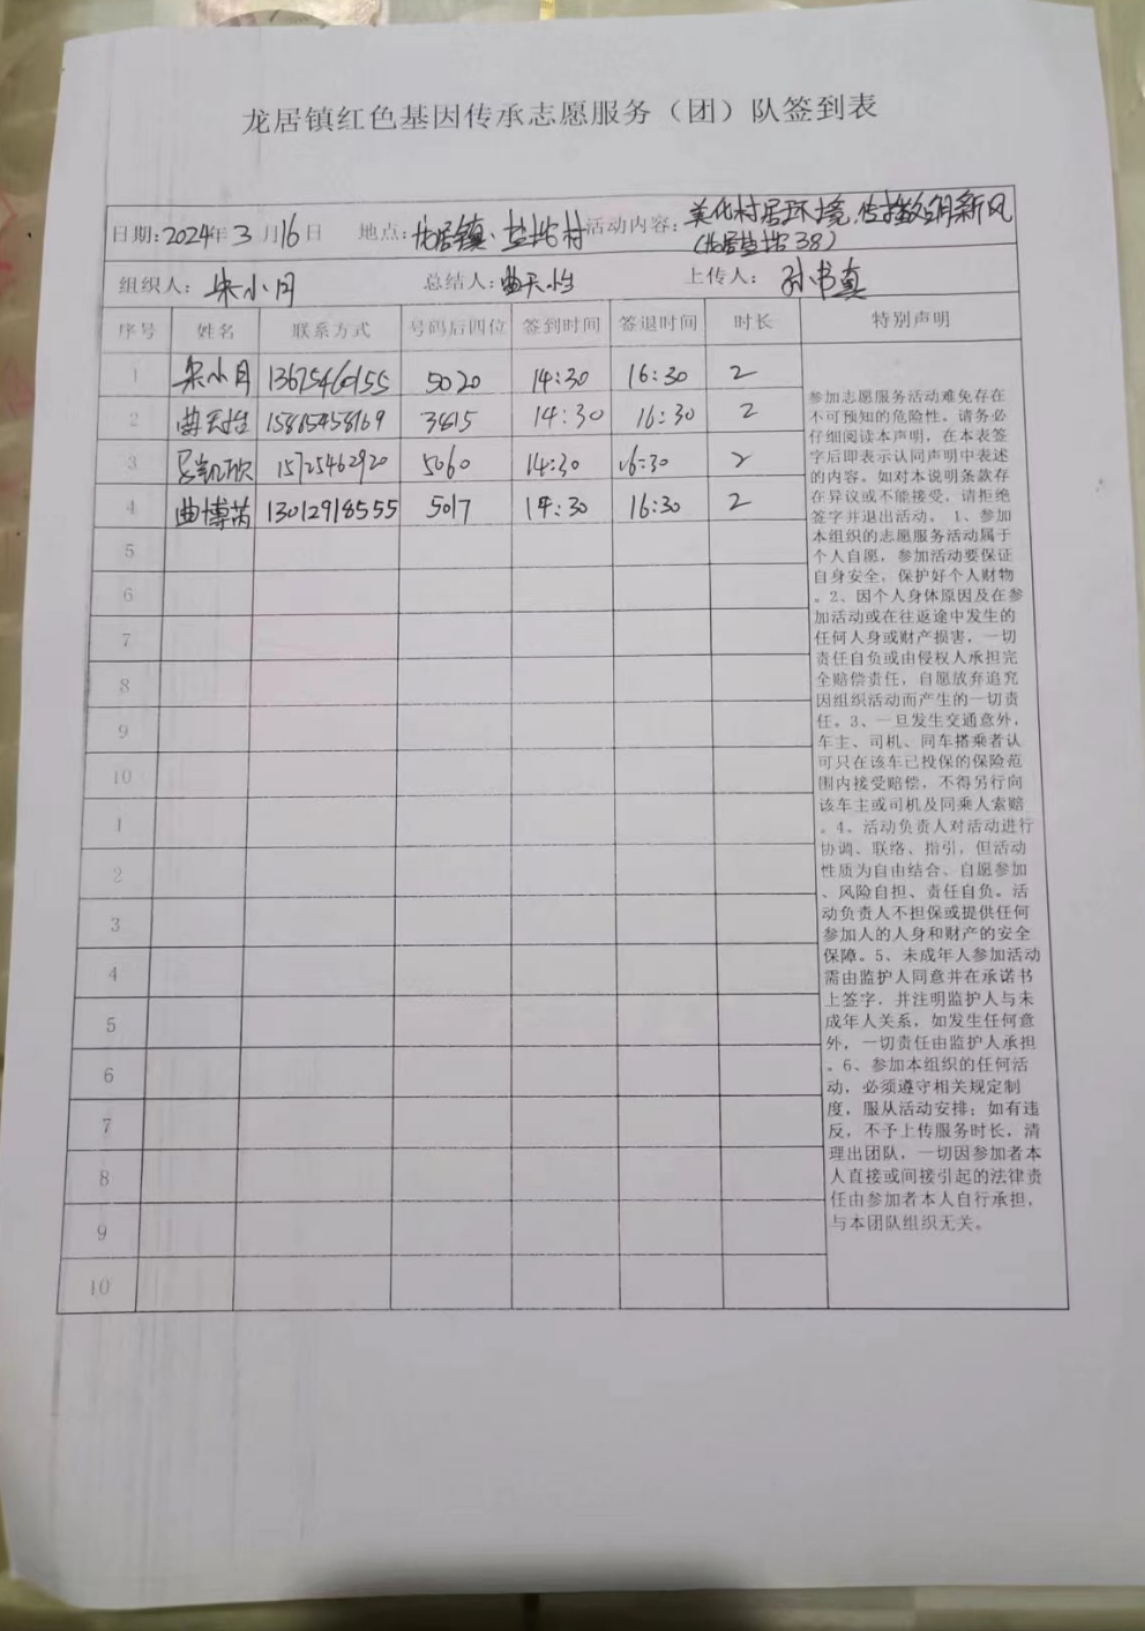 龙居镇红色基因传承志愿服务（团）队签到表
日期:2024年3月16日 地点:龙居镇·盐坨村 活动内容:美化村居环境,传播文明新风
(龙居盐坨38)
组织人: 朱小月 总结人:曲天怡 上传人: 孙书真
序号 姓名 联系方式 号码后四位 签到时间 签退时间 时长 特别声明
1 朱小月 13675460155 5020 14:30 16:30 2
2 曲天怡 15865458169 3615 14:30 16:30 2
3 凯欣 15725462920 5060 14:30 16:30 2
4 曲博芮 13012918555 5017 14:30 16:30 2
5
6
7
8
9
10
1
2
3
4
5
6
7
8
9
10
参加志愿服务活动难免存在
不可预知的危险性。请务必
仔细阅读本声明，在本表签
字后即表示认同声明中表述
的内容。如对本说明条款存
在异议或不能接受，请拒绝
签字并退出活动。 1、参加
本组织的志愿服务活动属于
个人自愿，参加活动要保证
自身安全，保护好个人财物
。2、因个人身体原因及在参
加活动或在往返途中发生的
任何人身或财产损害，一切
责任自负或由侵权人承担完
全赔偿责任，自愿放弃追究
因组织活动而产生的一切责
任。3、一旦发生交通意外，
车主、司机、同车搭乘者认
可只在该车已投保的保险范
围内接受赔偿，不得另行向
该车主或司机及同乘人索赔
。4、活动负责人对活动进行
协调、联络、指引，但活动
性质为自由结合、自愿参加
、风险自担、责任自负。活
动负责人不担保或提供任何
参加人的人身和财产的安全
保障。5、未成年人参加活动
需由监护人同意并在承诺书
上签字，并注明监护人与未
成年人关系，如发生任何意
外，一切责任由监护人承担
。6、参加本组织的任何活
动，必须遵守相关规定制
度，服从活动安排；如有违
反，不予上传服务时长，清
理出团队，一切因参加者本
人直接或间接引起的法律责
任由参加者本人自行承担，
与本团队组织无关。